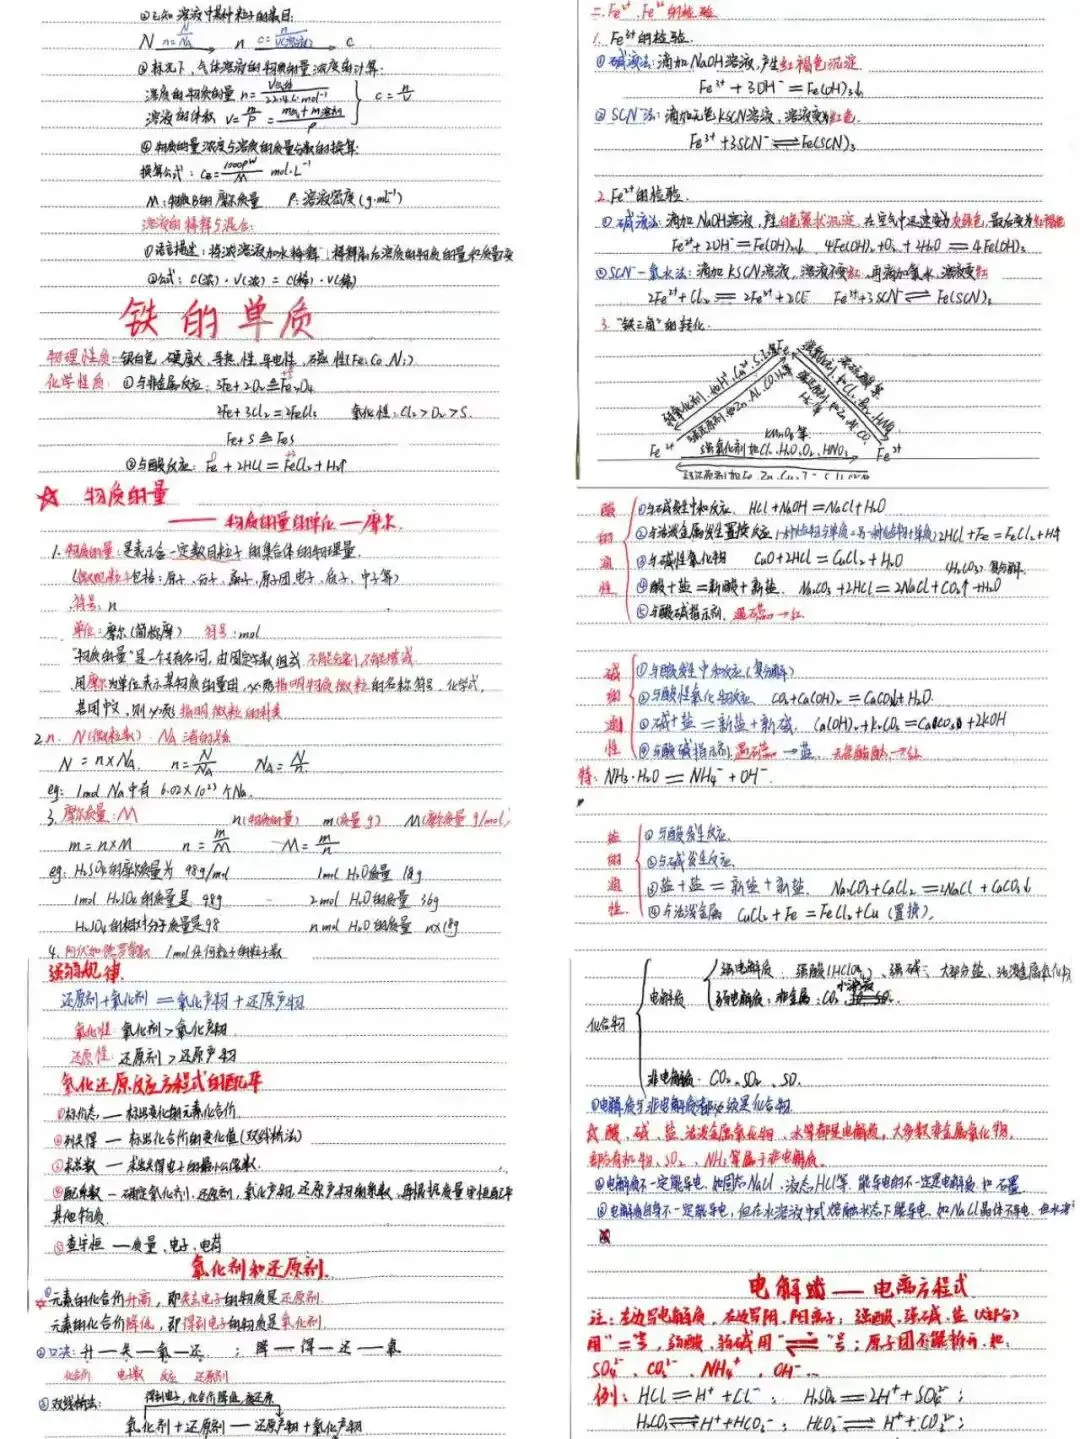 ②已知溶液中某种粒子的数目:
N n=N/NA n c=n/V(溶液) c
③标况下,气体溶质的物质的量浓度的计算:
溶质的物质的量 n=V气体/22.4L·mol⁻¹
溶液的体积 V=m/ρ=m气体+m溶剂/ρ
c=n/V
④物质的量浓度与溶质的质量分数的换算:
换算公式: CB=1000ρw/M mol·L⁻¹
M:物质B的摩尔质量 ρ:溶液密度(g·mL⁻¹)
溶液的稀释与混合:
①语言描述:将浓溶液加水稀释,稀释前后溶质的物质的量和质量不变
②公式: c(浓)·V(浓)=c(稀)·V(稀)
铁的单质
物理性质:银白色,硬度大,导热性,导电性,磁性(Fe、Co、Ni)
化学性质:①与非金属反应:3Fe+2O₂=Fe₃O₄
2Fe+3Cl₂=2FeCl₃ 氧化性:Cl₂>O₂>S
Fe+S≜FeS
②与酸反应: Fe+2HCl=FeCl₂+H₂↑
☆ 物质的量
—— 物质的量的单位——摩尔
1.物质的量:是表示含一定数目粒子的集合体的物理量
(微观粒子包括:原子、分子、离子、原子团、电子、质子、中子等)
符号: n
单位:摩尔(简称摩) 符号:mol
"物质的量"是一个专有名词,由固定字数组成,不能分割,不能增减
用摩尔为单位表示某物质的量时,必须指明物质微粒的名称、符号、化学式,
若用中文,则必须指明微粒的种类
2.n、N(微粒数)、NA之间的关系
N=n×NA n=N/NA NA=N/n
eg: 1mol Na中有6.02×10²³个Na
3.摩尔质量:M n(物质的量) m(质量 g) M(摩尔质量 g/mol)
m=n×M n=m/M M=m/n
eg: H₂SO₄的摩尔质量为 98g/mol 1mol H₂O质量 18g
1mol H₂SO₄的质量是 98g 2mol H₂O的质量 36g
H₂SO₄的相对分子质量是98 n mol H₂O的质量 n×18g
4.阿伏加德罗常数 1mol任何粒子的粒子数
强弱规律
还原剂+氧化剂=氧化产物+还原产物
氧化性:氧化剂>氧化产物
还原性:还原剂>还原产物
氧化还原反应方程式的配平
①标价态——标出变化的元素化合价
②列失得——标出化合价的变化值(双线桥法)
③求总数——求出失得电子的最小公倍数
④配系数——确定氧化剂、还原剂、氧化产物、还原产物的系数,再根据质量守恒配平
其他物质
⑤查守恒——质量、电子、电荷
氧化剂和还原剂
☆①元素的化合价升高,即失去电子的物质是还原剂
元素的化合价降低,即得到电子的物质是氧化剂
②口决:升—失—氧—还 ; 降—得—还—氧
化合价 电子数 反应 还原剂
③双线桥法: 得到电子,化合价降低,被还原
氧化剂+还原剂——还原产物+氧化产物
二.Fe²⁺、Fe³⁺的检验
1.Fe³⁺的检验
①碱液法:滴加NaOH溶液,产生红褐色沉淀
Fe³⁺+3OH⁻=Fe(OH)₃↓
②SCN⁻法:滴加无色KSCN溶液,溶液变为红色
Fe³⁺+3SCN⁻⇌Fe(SCN)₃
2.Fe²⁺的检验
①碱液法:滴加NaOH溶液,产生白色絮状沉淀,在空气中迅速变为灰绿色,最后变为红褐色
Fe²⁺+2OH⁻=Fe(OH)₂↓ 4Fe(OH)₂+O₂+2H₂O=4Fe(OH)₃
②SCN⁻—氯水法:滴加KSCN溶液,溶液不变红,再滴加氯水,溶液变红
2Fe²⁺+Cl₂=2Fe³⁺+2Cl⁻ Fe³⁺+3SCN⁻⇌Fe(SCN)₃
3."铁三角"的转化
Fe
弱氧化剂,如H⁺、Cu²⁺、S、I₂等
KMnO₄等
Fe²⁺ 强氧化剂如Cl₂、H₂O₂、O₂、HNO₃ Fe³⁺
酸的通性
①与碱发生中和反应 HCl+NaOH=NaCl+H₂O
②与活泼金属发生置换反应 2HCl+Fe=FeCl₂+H₂↑
③与碱性氧化物 CuO+2HCl=CuCl₂+H₂O
④酸+盐=新酸+新盐 Na₂CO₃+2HCl=2NaCl+CO₂↑+H₂O
⑤与酸碱指示剂 遇石蕊→红
碱的通性
①与酸发生中和反应(复分解)
②与酸性氧化物反应 CO₂+Ca(OH)₂=CaCO₃↓+H₂O
③碱+盐=新盐+新碱 Ca(OH)₂+K₂CO₃=CaCO₃↓+2KOH
④与酸碱指示剂 遇石蕊→蓝 无色酚酞→红
特: NH₃·H₂O=NH₄⁺+OH⁻
盐的通性
①与酸发生反应
②与碱发生反应
③盐+盐=新盐+新盐 Na₂CO₃+CaCl₂=2NaCl+CaCO₃↓
④与活泼金属 CuCl₂+Fe=FeCl₂+Cu(置换)
化合物
电解质
强电解质:强酸(HClO₄)、强碱、大部分盐、活泼金属氧化物
弱电解质:
非电解质: CO₂、SO₂、SO₃
①电解质与非电解质都必须是化合物
☆酸、碱、盐、活泼金属氧化物、水等都是电解质,大多数非金属氧化物,
部分有机物、SO₂、NH₃等属于非电解质
②电解质不一定能导电,如固态NaCl,液态HCl等,能导电的不一定是电解质,如石墨
③电解质自身不一定能导电,但在水溶液中或熔融状态下能导电,如NaCl晶体不导电,但水溶
电解或——电离方程式
注:左边写电解质,右边写阴、阳离子;强酸、强碱、盐(大部分)
用"="号,弱酸、弱碱用"⇌"号;原子团不能拆开,如:
SO₄²⁻、CO₃²⁻、NH₄⁺、OH⁻
例: HCl=H⁺+Cl⁻; H₂SO₄=2H⁺+SO₄²⁻;
H₂CO₃⇌H⁺+HCO₃⁻; HCO₃⁻⇌H⁺+CO₃²⁻;